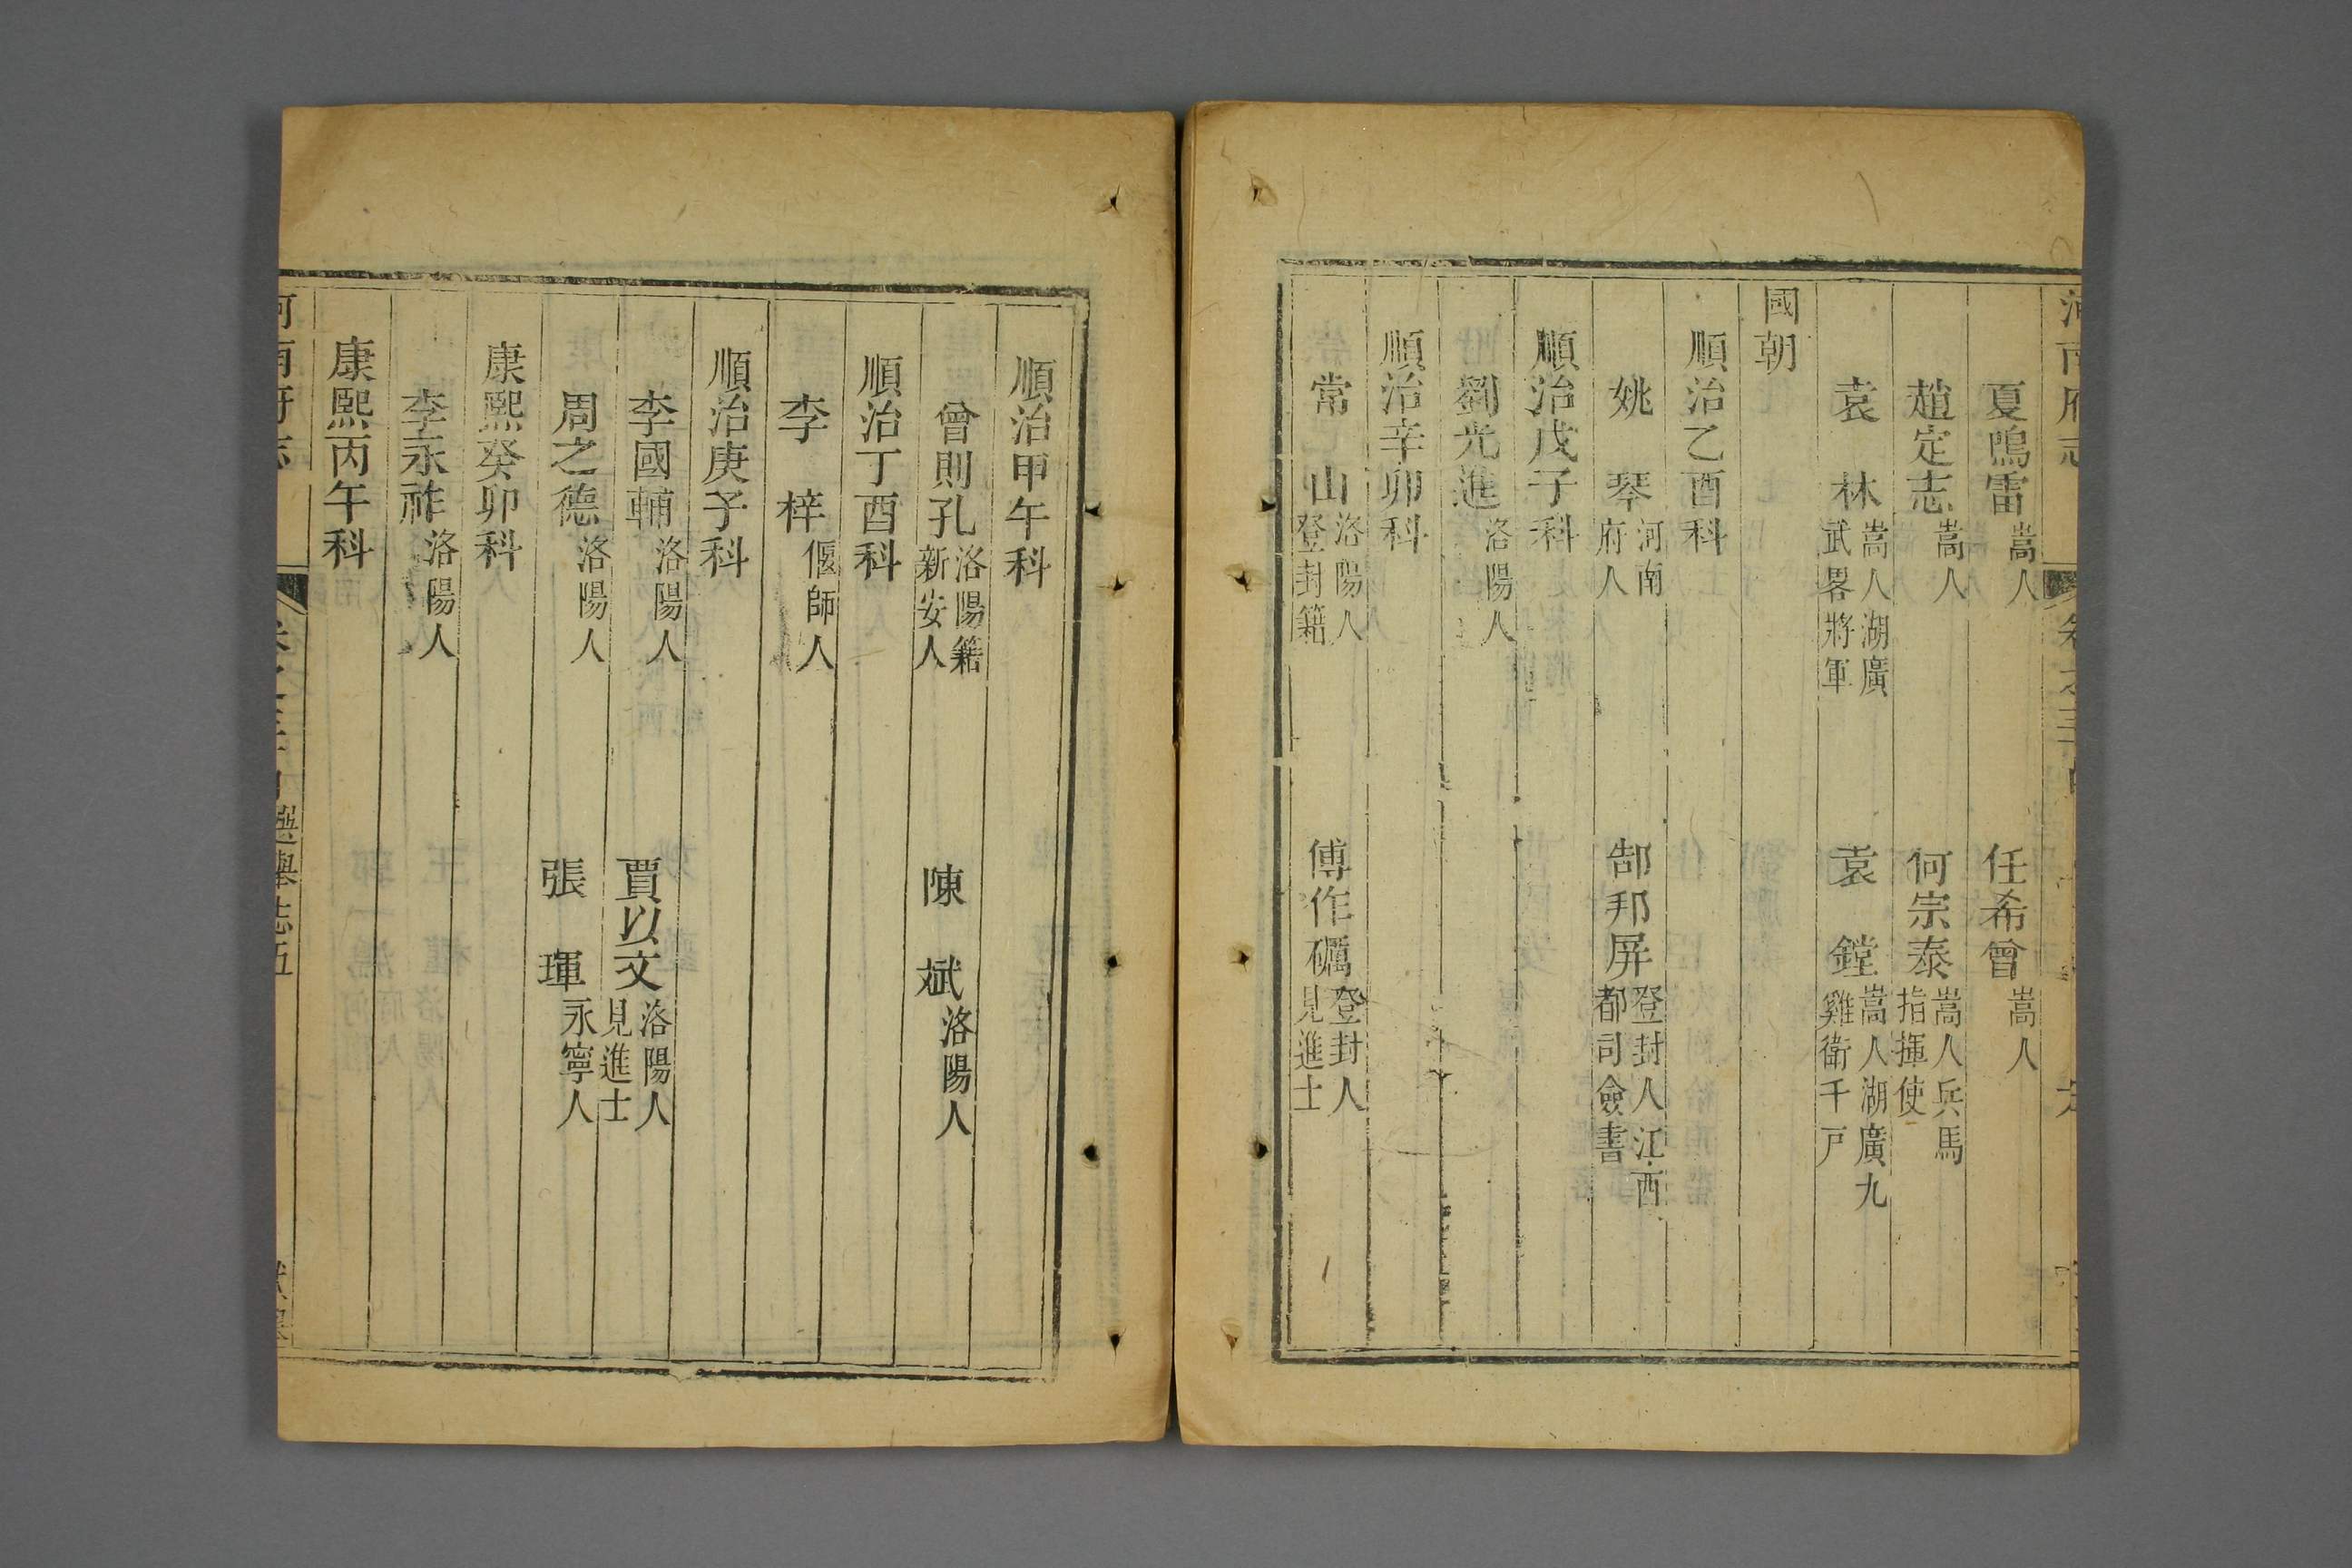 夏鳴雷嵩人 任希曾嵩人
趙定志嵩人 何宗泰嵩人兵馬指揮使
袁林嵩人湖廣武畧將軍 袁鏜嵩人湖廣九谿衛千戶
國朝
順治乙酉科
姚琴河南府人 郜邦屏登封人江西都司僉書
順治戊子科
劉光進洛陽人
順治辛卯科
常山洛陽人登封籍 傅作礪登封人見進士
順治甲午科
曾則孔洛陽籍新安人 陳斌洛陽人
順治丁酉科
李梓偃師人
順治庚子科
李國輔洛陽人 賈以文洛陽人見進士
周之德洛陽人 張琿永寧人
康熙癸卯科
李永祚洛陽人
康熙丙午科
河南府志 選舉志五